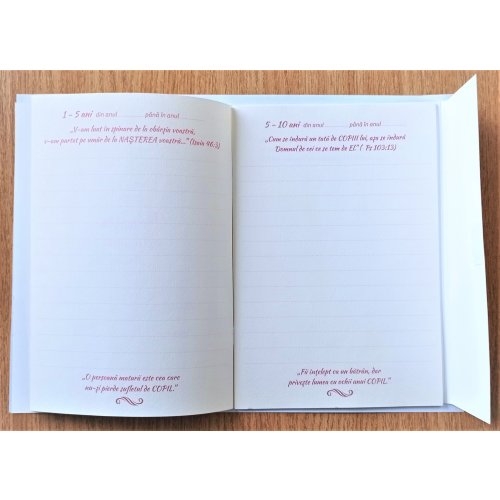 1 - 5 ani din anul ............ până în anul ......
„V-am luat în spinare de la obârșia voastră,
v-am purtat pe umăr de la NAȘTEREA voastră...” (Isaia 46:3)
„O persoană matură este cea care
nu-și pierde sufletul de COPIL.”
5 - 10 ani din anul ............ până în anul ............
„Cum se îndură un tată de COPIII lui, așa se îndură
Domnul de cei ce se tem de El.” ( Ps 103:13)
„Fii înțelept ca un bătrân, dar
privește lumea cu ochii unui COPIL.”